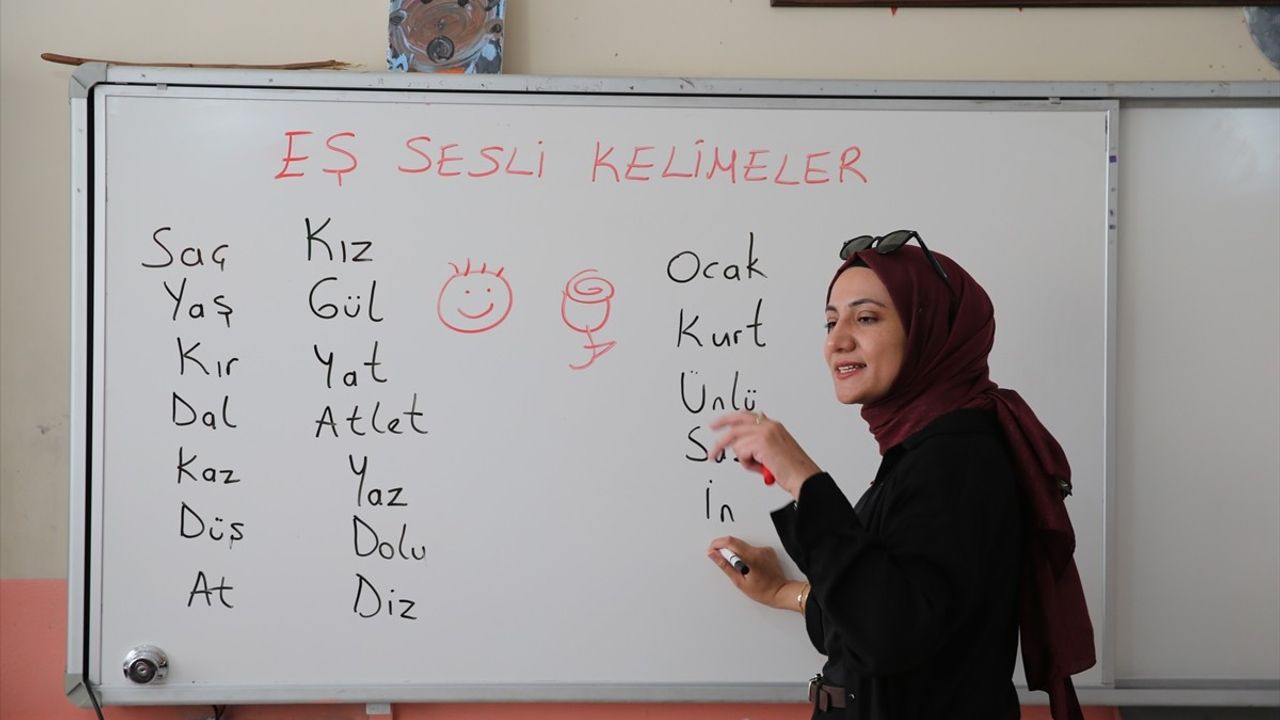 EŞ SESLİ KELİMELER
Saç
Yaş
Kır
Dal
Kaz
Düş
At
Kız
Gül
Yat
Atlet
Yaz
Dolu
Diz
Ocak
Kurt
Ünlü
İn